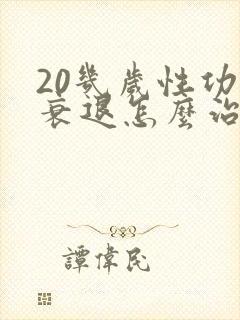 20幾歲性功
衰退怎麼治
譚偉民